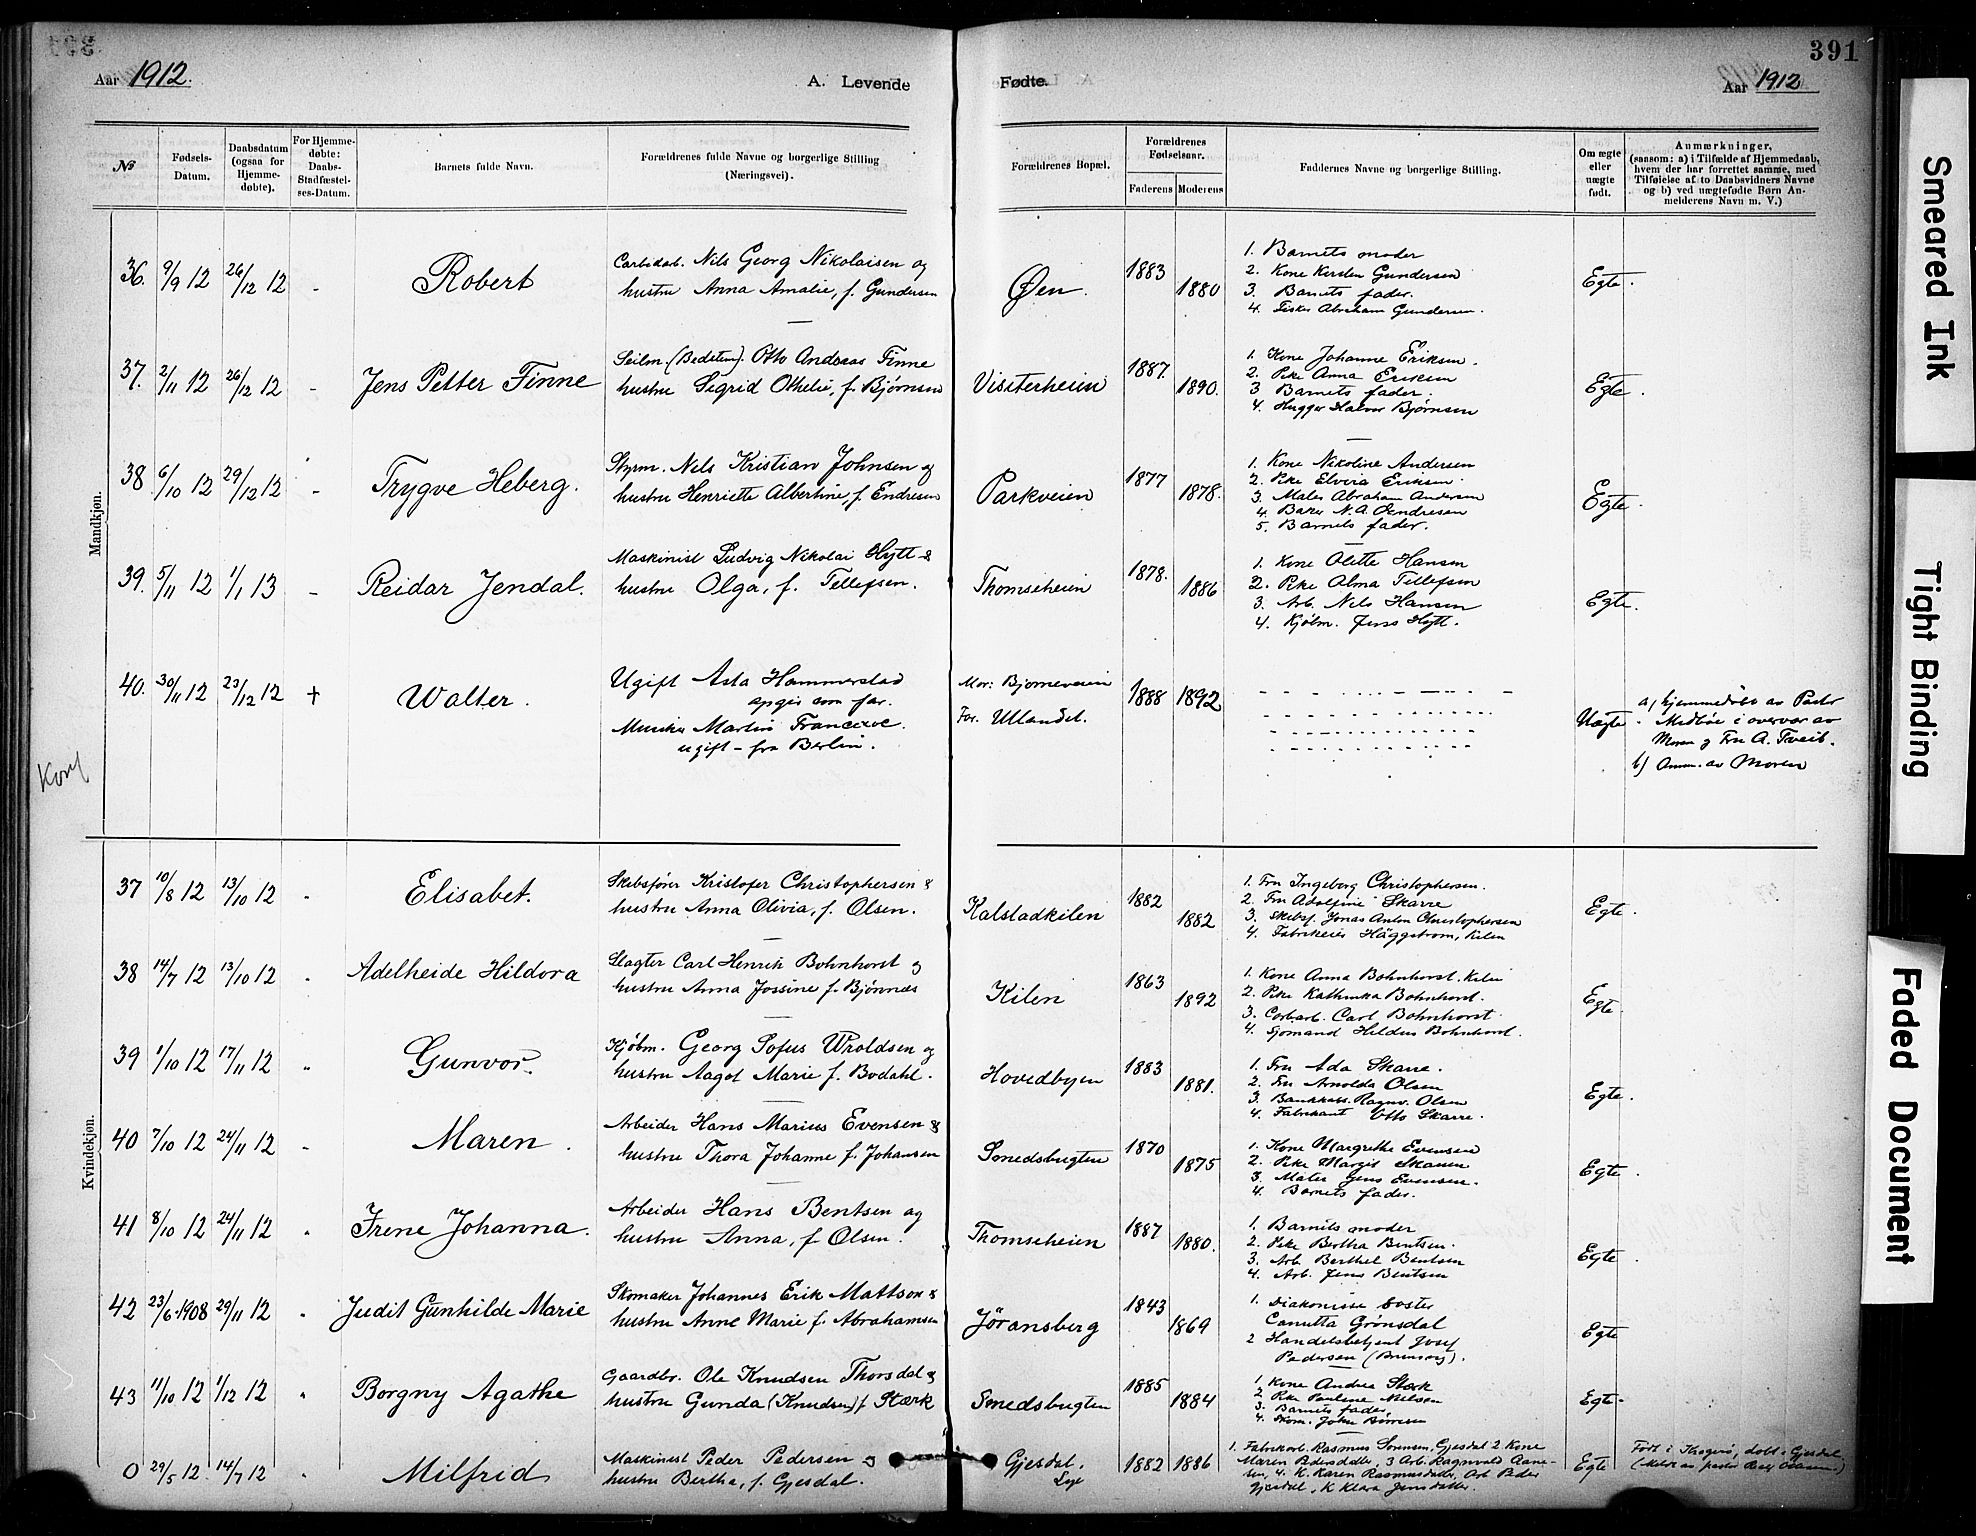 391
Aar 1912.
A. Levende
Fødte.
Aar 1912
№
Fødsels-
Datum.
Daabsdatum
(ogsaa for
Hjemme-
døbte).
For Hjemme-
døbte:
Daabs-
Stadfæstel-
ses-Datum.
Barnets fulde Navn.
Forældrenes fulde Navne og borgerlige Stilling
(Næringsvei).
Forældrenes Bopæl.
Forældrenes
Fødselsaar.
Faderens
Moderens
Faddernes Navne og borgerlige Stilling.
Om ægte
eller
uægte
født.
Anmærkninger,
(saasom: a) i Tilfælde af Hjemmedaab,
hvem der har forrettet samme, med
Tilføielse af to Daabsvidners Navne
og b) ved uægtefødte Børn An-
melderens Navn m. V.)
Mandkjøn.
36. 9/9 12 26/12 12 - Robert
Carbidarb. Nils Georg Nikolaisen og
hustru Anna Amalie, f. Gundersen
Øen. 1883 1880
1. Barnets moder
2. Kone Kirsten Gundersen
3. Barnets fader.
4. Fisker Abraham Gundersen.
Egte.
37. 2/11 12 26/12 12 - Jens Petter Finne
Seilm. (Bedstem). Otto Andreas Finne
hustru Sigrid Othelie, f. Bjørnsen
Visiterheien 1887. 1890.
1. Kone Johanne Eriksen.
2. Pike Anna Eriksen
3 Barnets fader.
4. Hugger Halvor Bjørnsen
Egte.
38. 6/10 12 29/12 12 - Trygve Heberg.
Styrm. Nils Kristian Johnsen og
hustru Henriette Albertine, f. Endresen
Parkveien 1877 1878.
1. Kone Nikoline Andersen
2. Pike Elvira Eriksen.
3. Maler Abraham Andersen
4. Baker N. A. Endresen
5. Barnets fader.
Egte.
39. 5/11 12 1/1 13 - Reidar Jendal.
Maskinist Ludvig Nikolai Hytt &
hustru Olga, f. Tellefsen.
Thomseheien 1878. 1886
1. Kone Olette Hansen
2. Pike Alma Tellefsen
3. Arb. Nils Hansen
4. Kjøbm. Jens Hytt.
Egte.
40. 30/11 12 23/12 12 + Walter.
Ugift Asta Hammerstad
opgir som far.
Musiker Martin
ugift - fra Berlin.
Mor: Bjorneveien
Far. Utlandet.
1888 1892
Uægte
a) hjemmedøbt av Pastor
Midbøe i overvær av
Moren og Fru A. Tveit.
b) Anm. av Moren
Kvindekjøn.
37 10/8 12 13/10 12 Elisabet.
Skibsfører Kristofer Christophersen &
hustru Anna Olivia, f. Olsen.
Kalstadkilen 1882 1882
1. Fru Ingeborg Christophersen.
2. Fru Adolfine Skarre
3. Skibsf. Jonas Anton Christophersen
4. Fabrikeier Häggstrøm, Kilen
Egte.
38 14/7 12 13/10 12 Adelheide Hildora
Slagter Carl Henrik Bohnhorst og
hustru Anna Jossine f. Bjønnæs
Kilen 1863 1892
1. Kone Anna Bohnhorst. Kilen
2. Pike Kathinka Bohnhorst.
3. Carbarb. Carl Bohnhorst.
4. Sjømand Hildus Bohnhorst.
Egte.
39 1/10 12 17/11 12 „ Gunvor.
Kjøbm. Georg Sofus Wroldsen og
hustru Aagot Marie f. Bodahl.
Hovedbyen 1883 1881.
1. Fru Ada Skarre.
2. Fru Arnolda Olsen
3. Bankkass. Ragnv. Olsen
4. Fabrikant Otto Skarre.
Egte.
40 7/10 12 24/11 12 - Maren.
Arbeider Hans Marius Evensen &
hustru Thora Johanne f. Johansen
Smedsbugten 1870 1875
1. Kone Margrethe Evensen
2. Pike Margit
3. Maler Jens Evensen.
4. Barnets fader.
Egte.
41 8/10 12 24/11 12 Irene Johanna.
Arbeider Hans Bentsen og
hustru Anna, f. Olsen.
Thomseheien 1887 1880.
1. Barnets moder
2. Pike Bertha Bentsen.
3. Arb. Berthel Bentsen
4. Arb. Jens Bentsen
Egte.
42 23/6 1908 29/11 12 Judit Gunhilde Marie
Skomaker Johannes Erik Mattson &
hustru Anne Marie f. Abrahamsen
Jøransberg 1843 1869
1. Diakonisse Søster
Canutta Grønsdal
2 Handelsbetjent Josef
Pedersen
Egte.
43 11/10 12 1/12 12 Borgny Agathe
Gaardbr. Ole Knudsen Thorsdal &
hustru Gunda (Knudsen) f. Stærk
Smedsbugten 1885 1884
1. Kone Andrea Stærk
2 Pike Pauline Nilsen
3. Barnets fader
4. Skom. John
Egte.
0 29/5 12. 14/7 12 Milfrid
Maskinist Peder Pedersen og
hustru Bertha, f. Gjesdal.
Gjesdal,
Lye
1882 1886
1. Fabrikarb. Rasmus Sørensen, Gjesdal 2 Kone
Maren Pedersdatter, 3 Arb. Ragnvald Aane-
sen, 4. K. Karen Rasmusdatter, Arb Peder
Gjesdal, K Klara Jensdatter.
Egte
Født i Kragerø, døbt i Gjesdal
Smeared Ink
Tight Binding
Faded Document